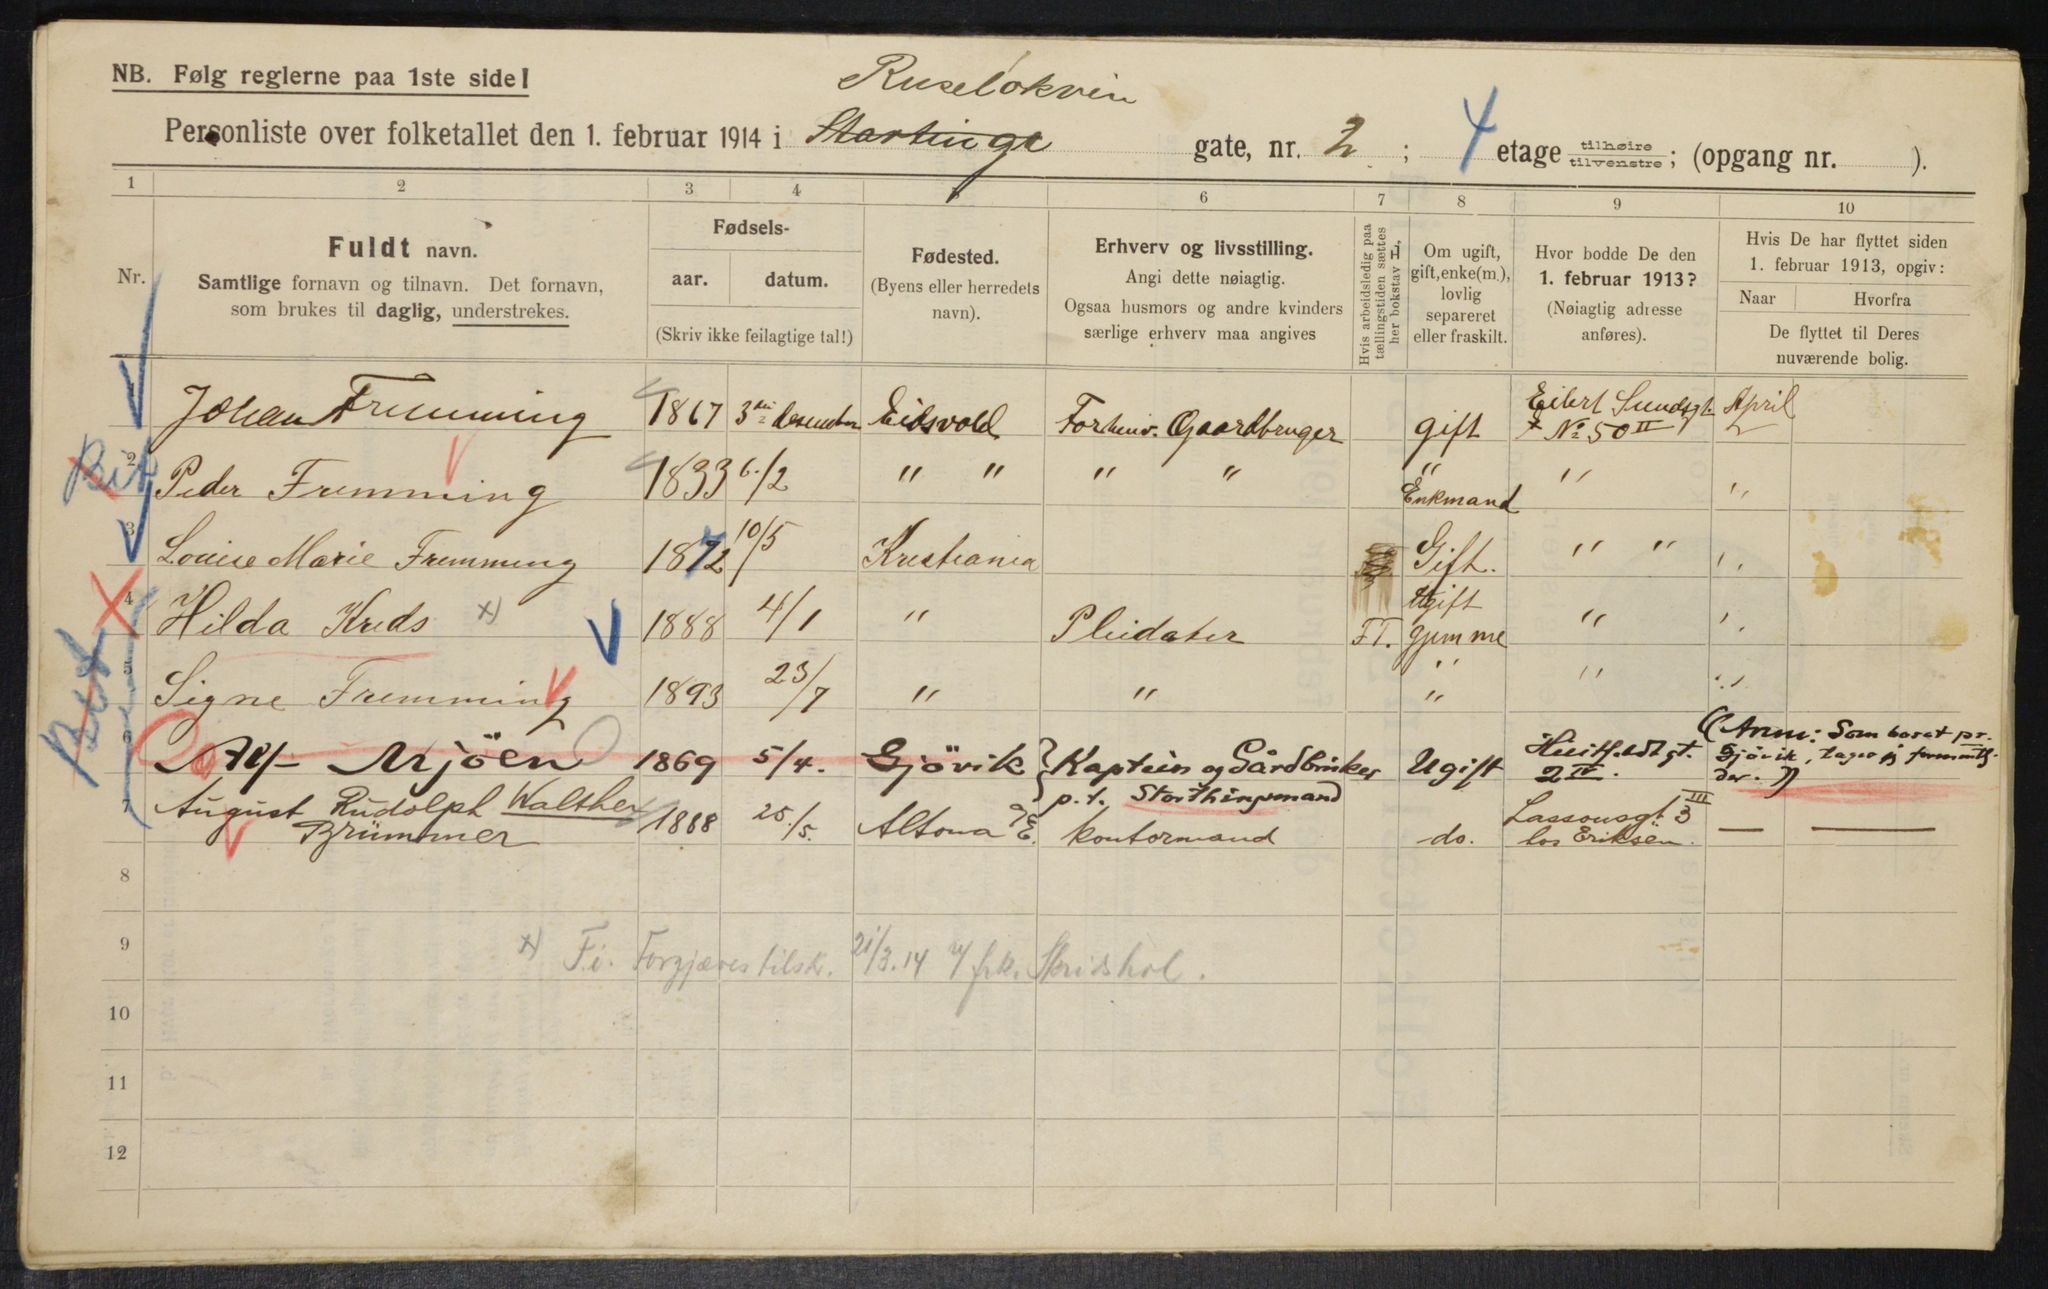 NB. Følg reglerne paa 1ste side!
Ruseløkvein
Personliste over folketallet den 1. februar 1914 i Stortings gate, nr. 2 ; 4 etage tilhøire tilvenstre ; (opgang nr. ).
1 2 3 4 6 7 8 9 10
Nr.
Fuldt navn.
Samtlige fornavn og tilnavn. Det fornavn,
som brukes til daglig, understrekes.
Fødsels-
aar. datum.
(Skriv ikke feilagtige tal!)
Fødested.
(Byens eller herredets
navn).
Erhverv og livsstilling.
Angi dette nøiagtig.
Ogsaa husmors og andre kvinders
særlige erhverv maa angives
Hvis arbeidsledig paa
tællingstiden sættes
her bokstav L.
Om ugift,
gift, enke(m.),
lovlig
separeret
eller fraskilt.
Hvor bodde De den
1. februar 1913?
(Nøiagtig adresse
anføres).
Hvis De har flyttet siden
1. februar 1913, opgiv:
Naar Hvorfra
De flyttet til Deres
nuværende bolig.
Johan Fremming 1867 3die desember Eidsvold Forhenv. Gaardbruger gift Eilert Sundsgt. No 50 II April
2 Peder Fremming 1833 6/2 " " " " " Enkmand " "
3 Louise Marie Fremming 1872 10/5 Kristiania Gift. " " "
4 Hilda Kreds x) 1888 4/1 " FT. Ugift hjemme " "
5 Signe Fremming 1893 23/7 " " " " "
6 Alf Mjöen 1869 5/4. Gjövik Kaptein og Gårdbruker Ugift Huitfeldtgt. (Anm: Som boret pr.
p.t. Storthingsmand 2 IV. Gjövik, tager jeg
der.)
7 August Rudolph Walther 1888 25./5. Altona kontormand do. Lassonsgt. 3 III — —
Brümmer hos Eriksen.
8
9
x) F.i. Forgjæves tilsk. 21/3.14 v/ frk. Skridshol.
10
11
12